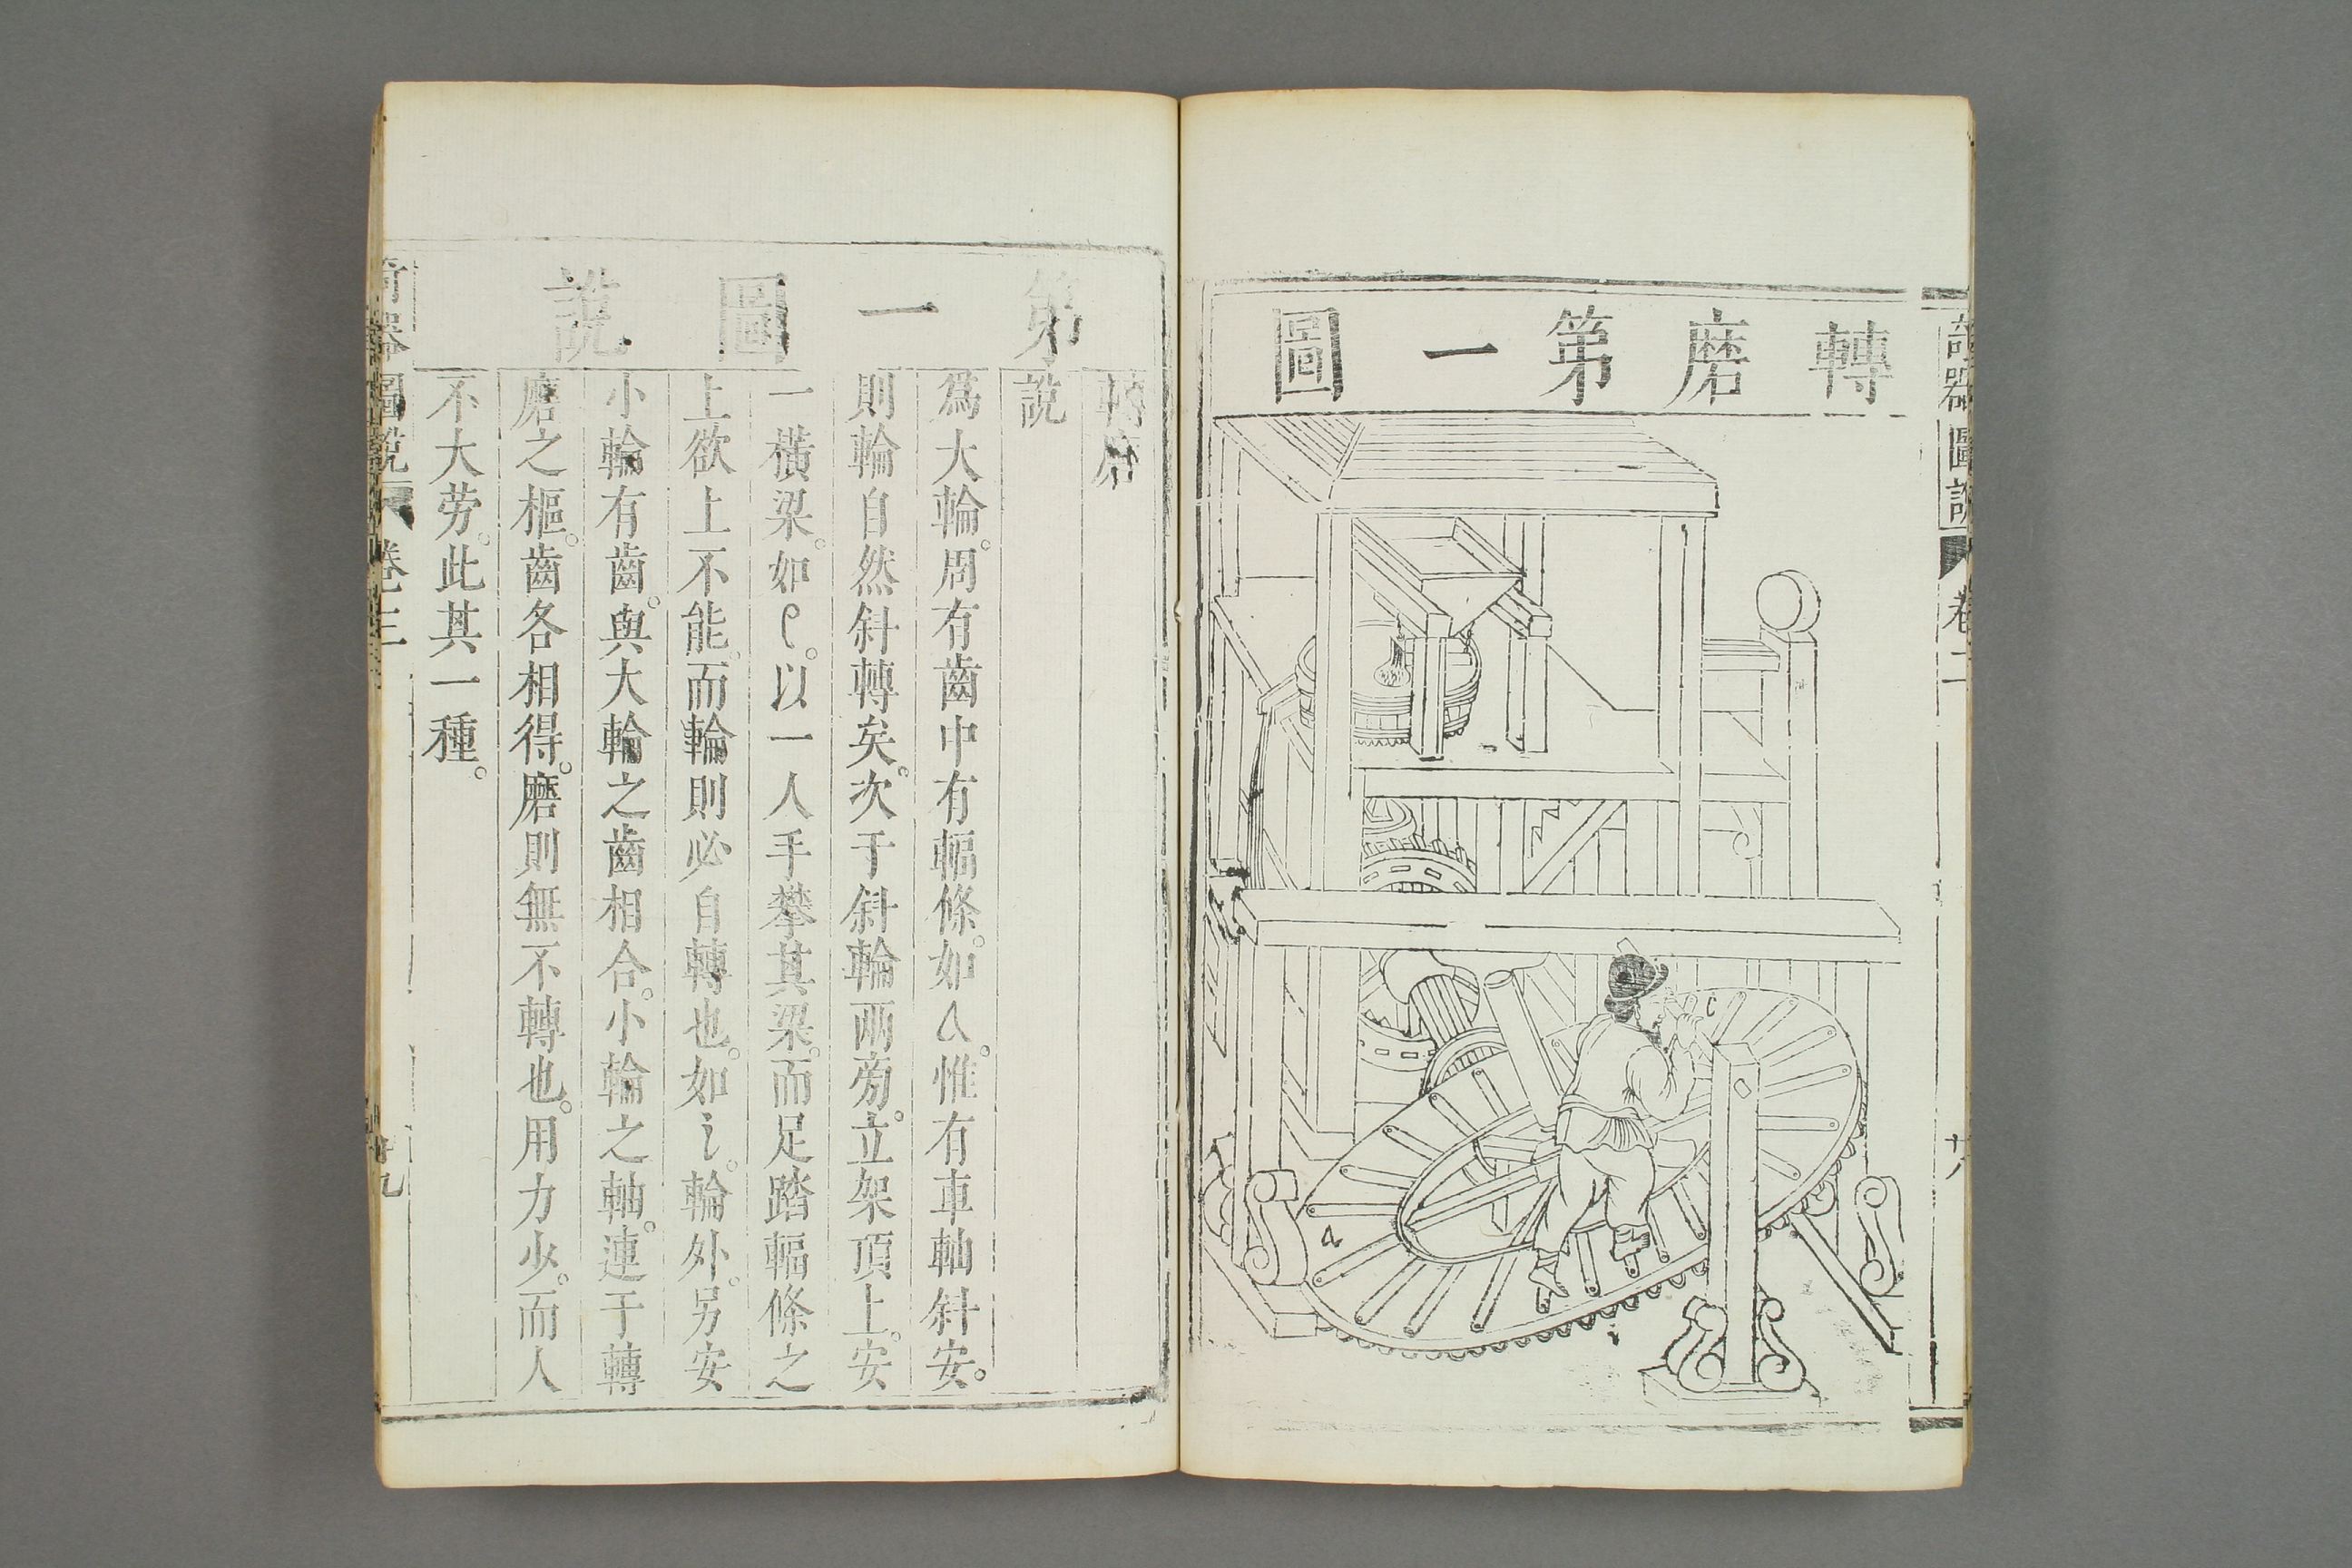 奇器圖說 卷三 廿八
轉磨第一圖
c
a
第一圖說
轉磨
說
爲大輪。周有齒中有輻條。如a。惟有車軸斜安。
則輪自然斜轉矣。次于斜輪兩旁。立架頂上。安
一橫梁。如e。以一人手攀其梁。而足踏輻條之
上欲上不能。而輪則必自轉也。如i。輪外。另安
小輪有齒。與大輪之齒相合。小輪之軸。連于轉
磨之樞。齒各相得。磨則無不轉也。用力少。而人
不大劳。此其一種。
奇器圖說 卷三 廿九